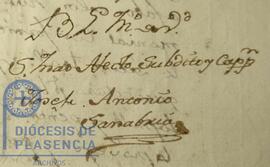 B. L. M. de V.
Su Mas Afecto Subdito y Cappn
Joseph Antonio
Sanabria
DIÓCESIS DE
PLASENCIA
ARCHIVOS